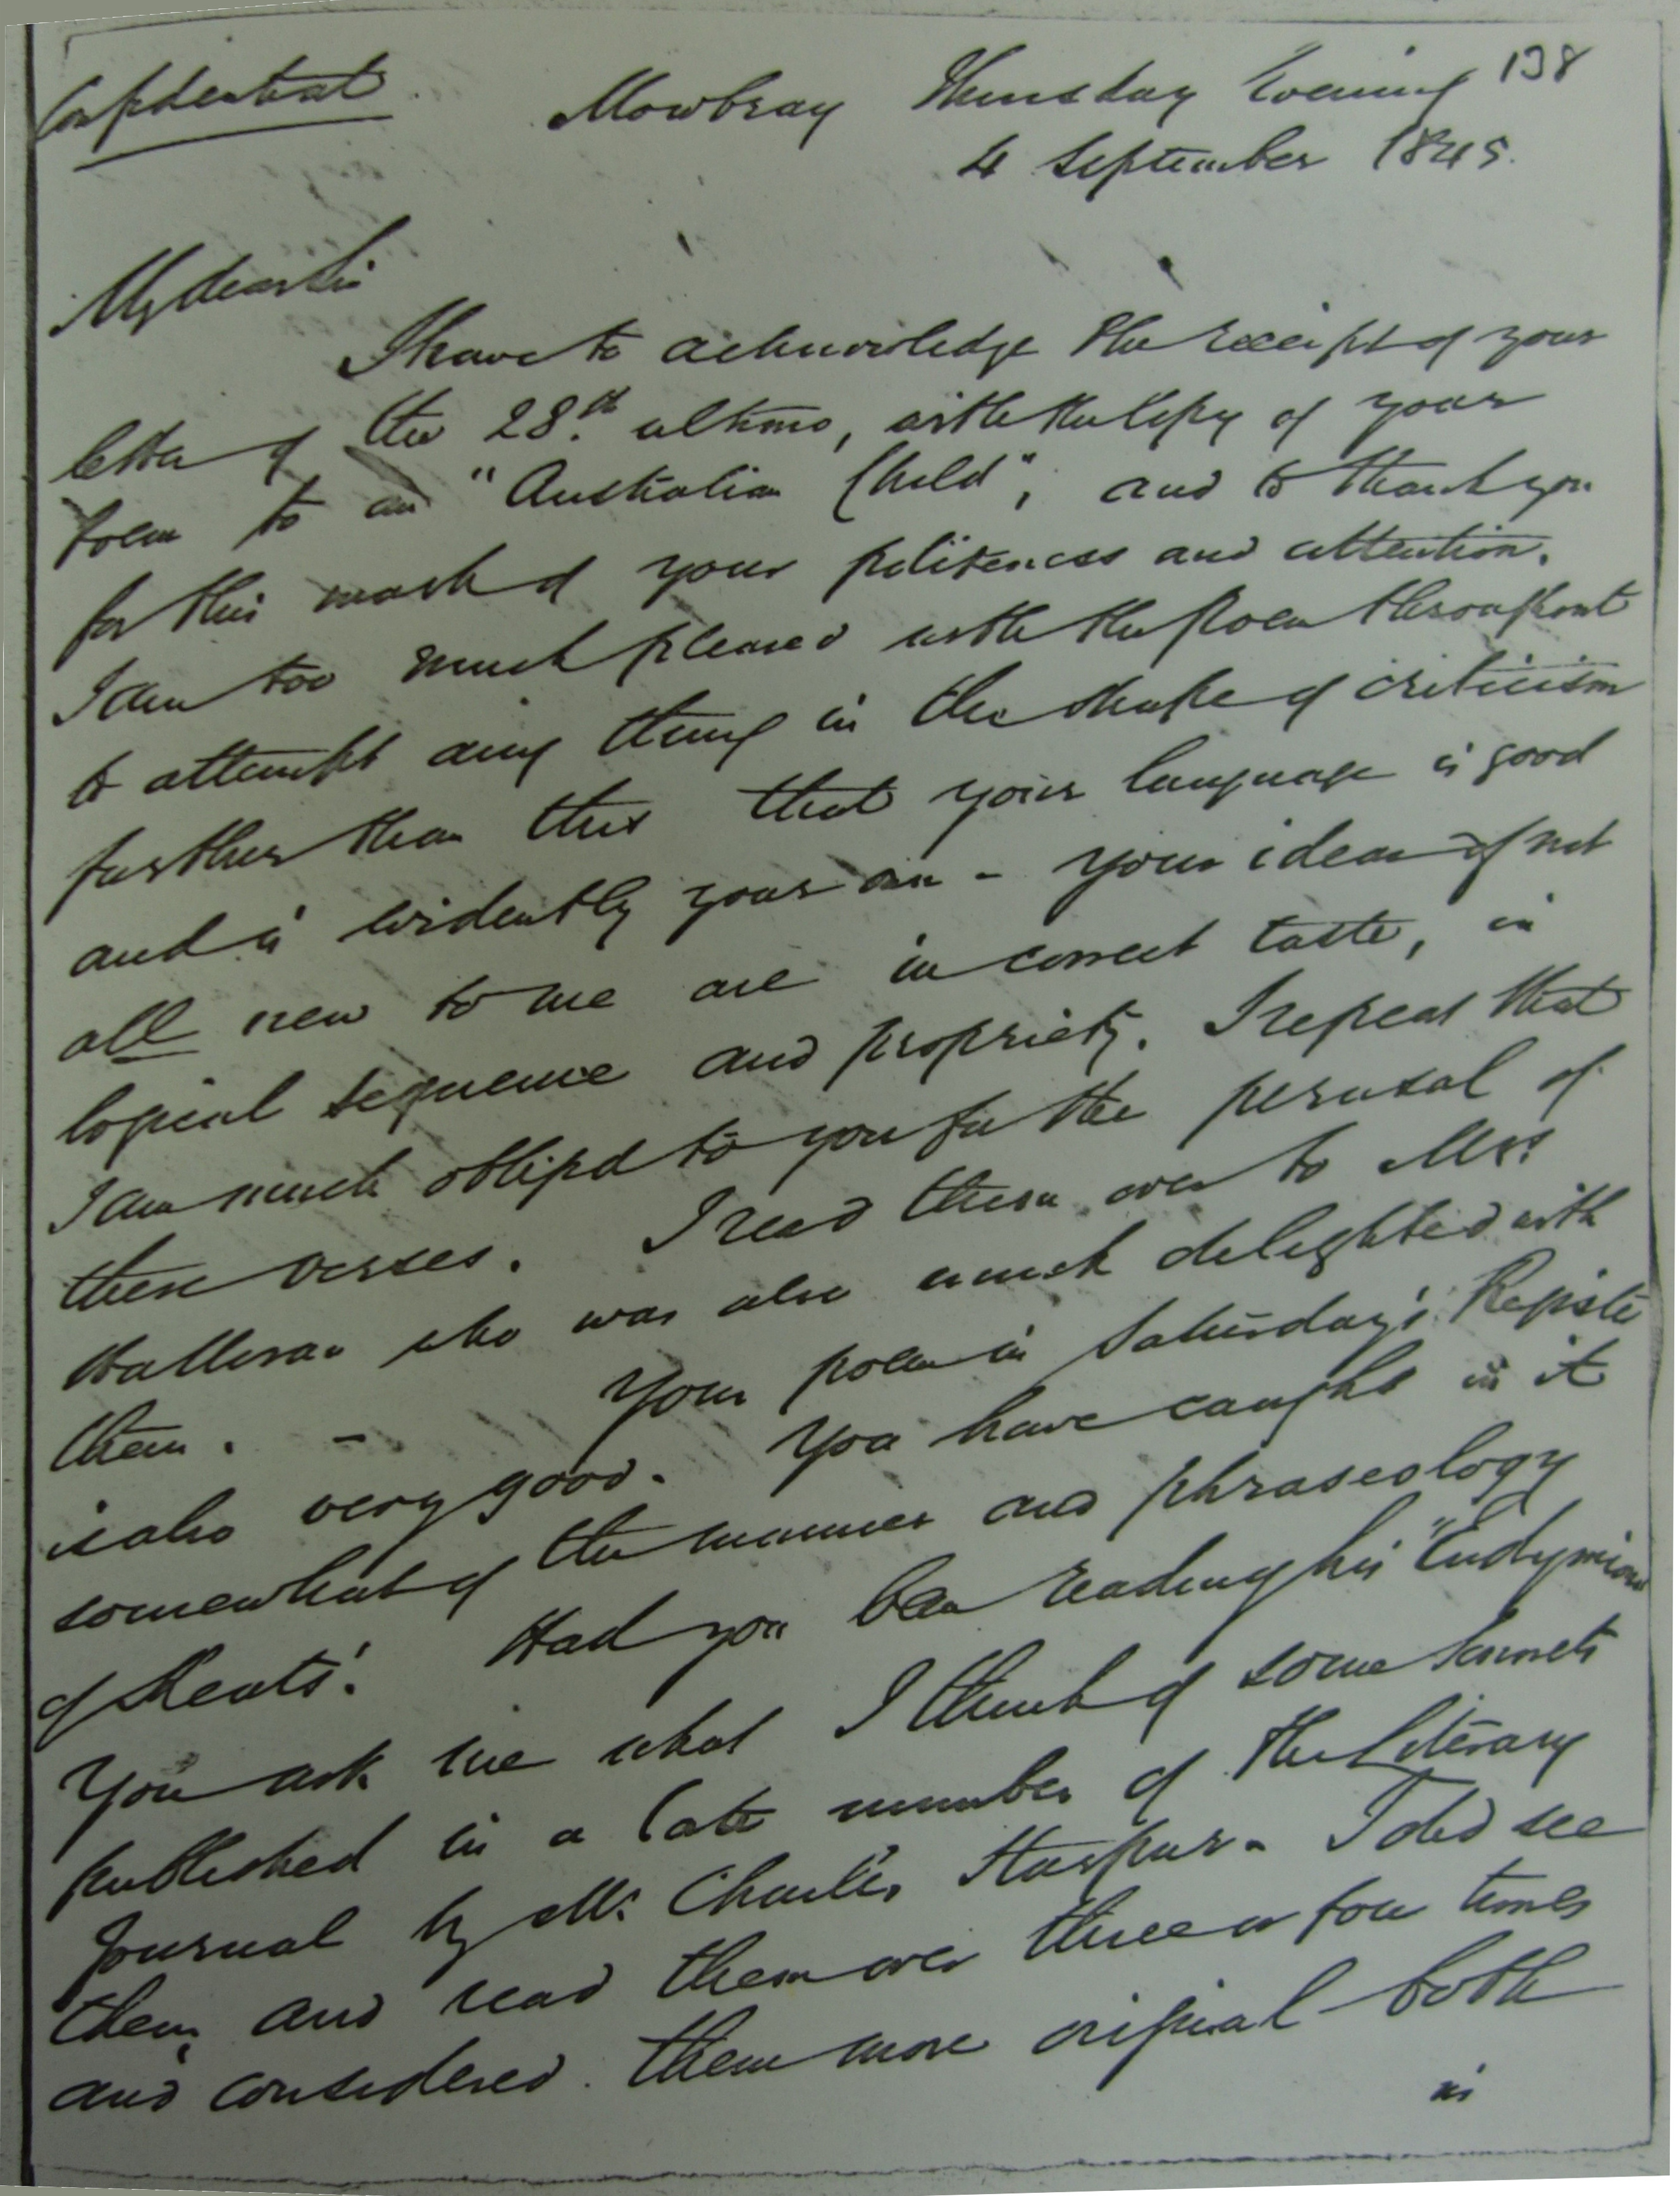 Confidential. Mowbray Thursday Evening 138
4 September 1845.
My dear Sir
I have to acknowledge the receipt of your
letter of the 28th ultimo, with the Copy of your
Poem to an "Australian Child"; and to thank you
for this mark of your politeness and attention.
I am too much pleased with the Poem throughout
to attempt any thing in the shape of criticism
further than this that your language is good
and is evidently your own - your ideas if not
all new to me are in correct taste, in
logical sequence and propriety. I repeat that
I am much obliged to you for the perusal of
these verses. I read them over to Mrs.
Halloran who was also much delighted with
them. - Your poem in Saturday's Register
is also very good. You have caught in it
somewhat of the manner and phraseology
of Keats'. Had you been reading his "Endymion
You ask me what I think of some Sonnets
published in a late number of the Literary
Journal by Mr. Charles Harpur - I did see
them, and read them over three or four times
and considered them more original both
in